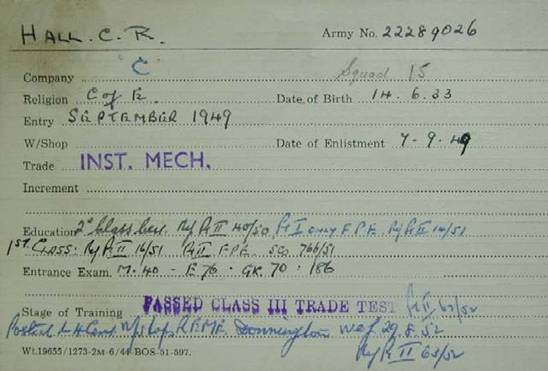 HALL. C. R. Army No. 22289026
Company "C" Squad 15
Religion C of E. Date of Birth 14.6.33
Entry SEPTEMBER 1949
W/Shop Date of Enlistment 7-9-49
Trade INST. MECH.
Increment
Education 2nd Class Pt II 40/50 Pt I only F.P.E. Pt II 14/51
1ST CLASS: Pt II 16/51 Pt II F.P.E. 766/51
Entrance Exam. M.40 - E 76 . GK. 70 . 186
Stage of Training PASSED CLASS III TRADE TEST Pt II 63/52
Posted W/Shops R.E.M.E. Donnington wef 29.8.52
Pt II 63/52
Wt.19655/1273-2M-6/44 BOS-51-597.